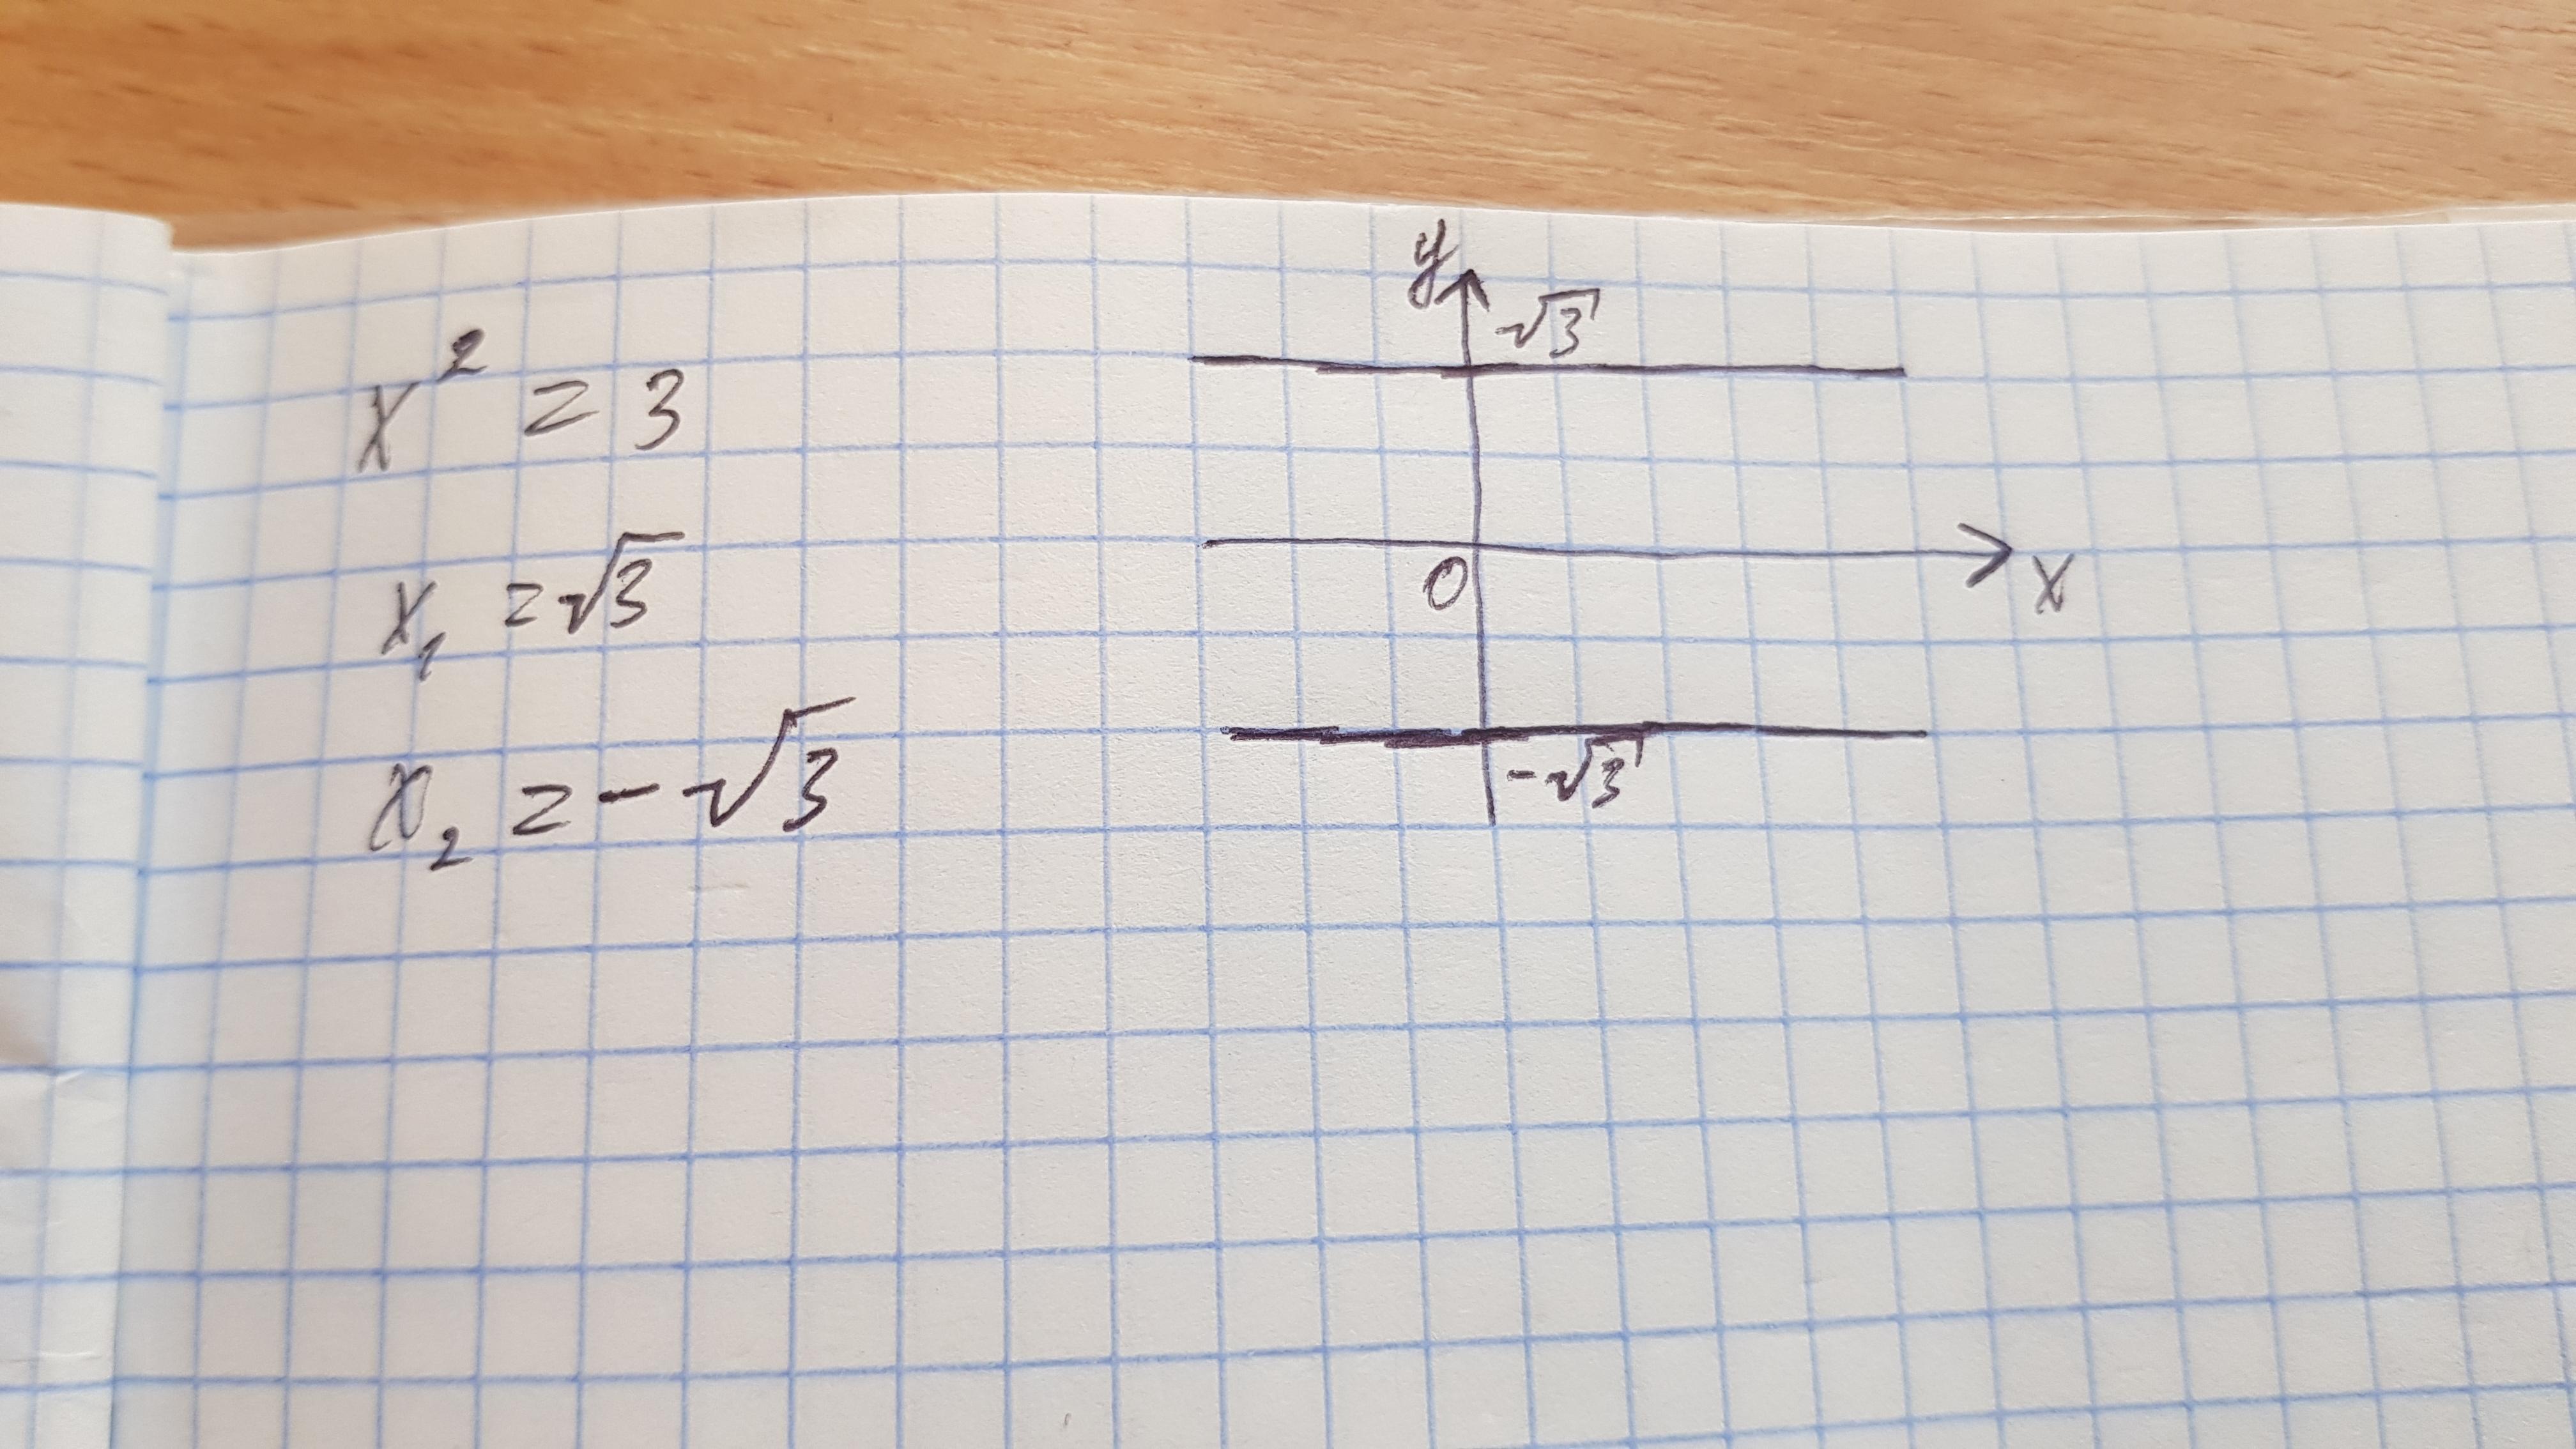 x² = 3
x₁ = √3
x₂ = -√3
y
√3
0
x
-√3